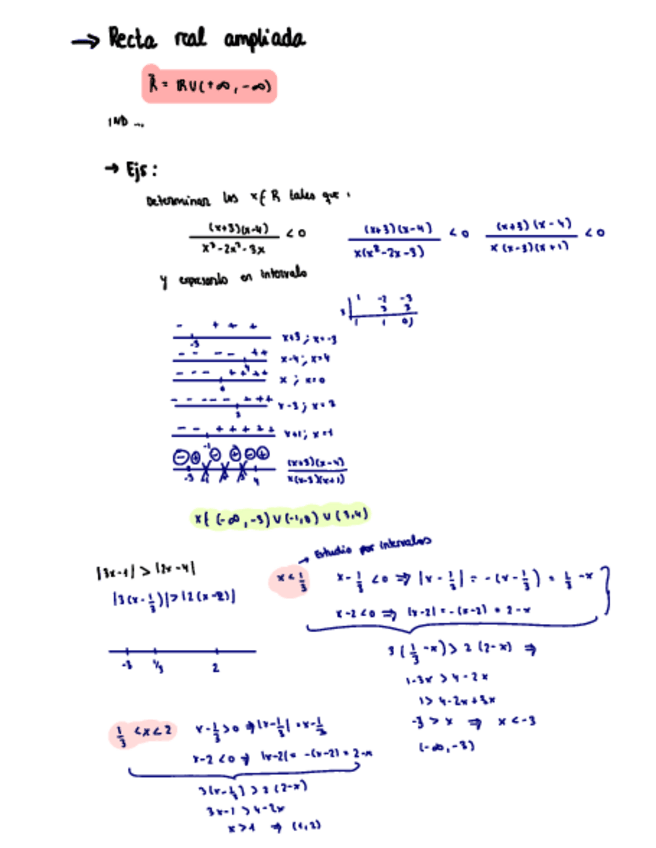 → Recta real ampliada
R̄ = ℝ ∪ (+∞, -∞)
IND ...
→ Ejs:
Determinar los x ∈ R tales que:
(x+3)(x-4) / x³-2x²-3x < 0    (x+3)(x-4) / x(x²-2x-3) < 0    (x+3)(x-4) / x(x-3)(x+1) < 0
y expresarlo en intervalo
1 -2 -3
3 | 3 3
1 1 0
- + + +
-3
x+3; x=-3
- - - - + +
4
x-4; x=4
- - - + + + +
0
x; x=0
- - - - - + + +
3
x-3; x=3
- - + + + + +
-1
x+1; x=-1
- + - + - +
-3 -1 0 3 4
(x+3)(x-4) / x(x-3)(x+1)
x ∈ (-∞, -3) ∪ (-1, 0) ∪ (3, 4)
→ Estudio por intervalos
|3x-1| > |2x-4|
|3(x-1/3)| > |2(x-2)|
-3 1/3 2
x < 1/3
x - 1/3 < 0 ⇒ |x - 1/3| = -(x - 1/3) = 1/3 - x
x-2 < 0 ⇒ |x-2| = -(x-2) = 2-x
3(1/3 - x) > 2(2-x) ⇒
1-3x > 4-2x
1 > 4-2x+3x
-3 > x ⇒ x < -3
(-∞, -3)
1/3 < x < 2
x - 1/3 > 0 ⇒ |x - 1/3| = x - 1/3
x-2 < 0 ⇒ |x-2| = -(x-2) = 2-x
3(x - 1/3) > 2(2-x)
3x-1 > 4-2x
x > 1 ⇒ (1, 2)